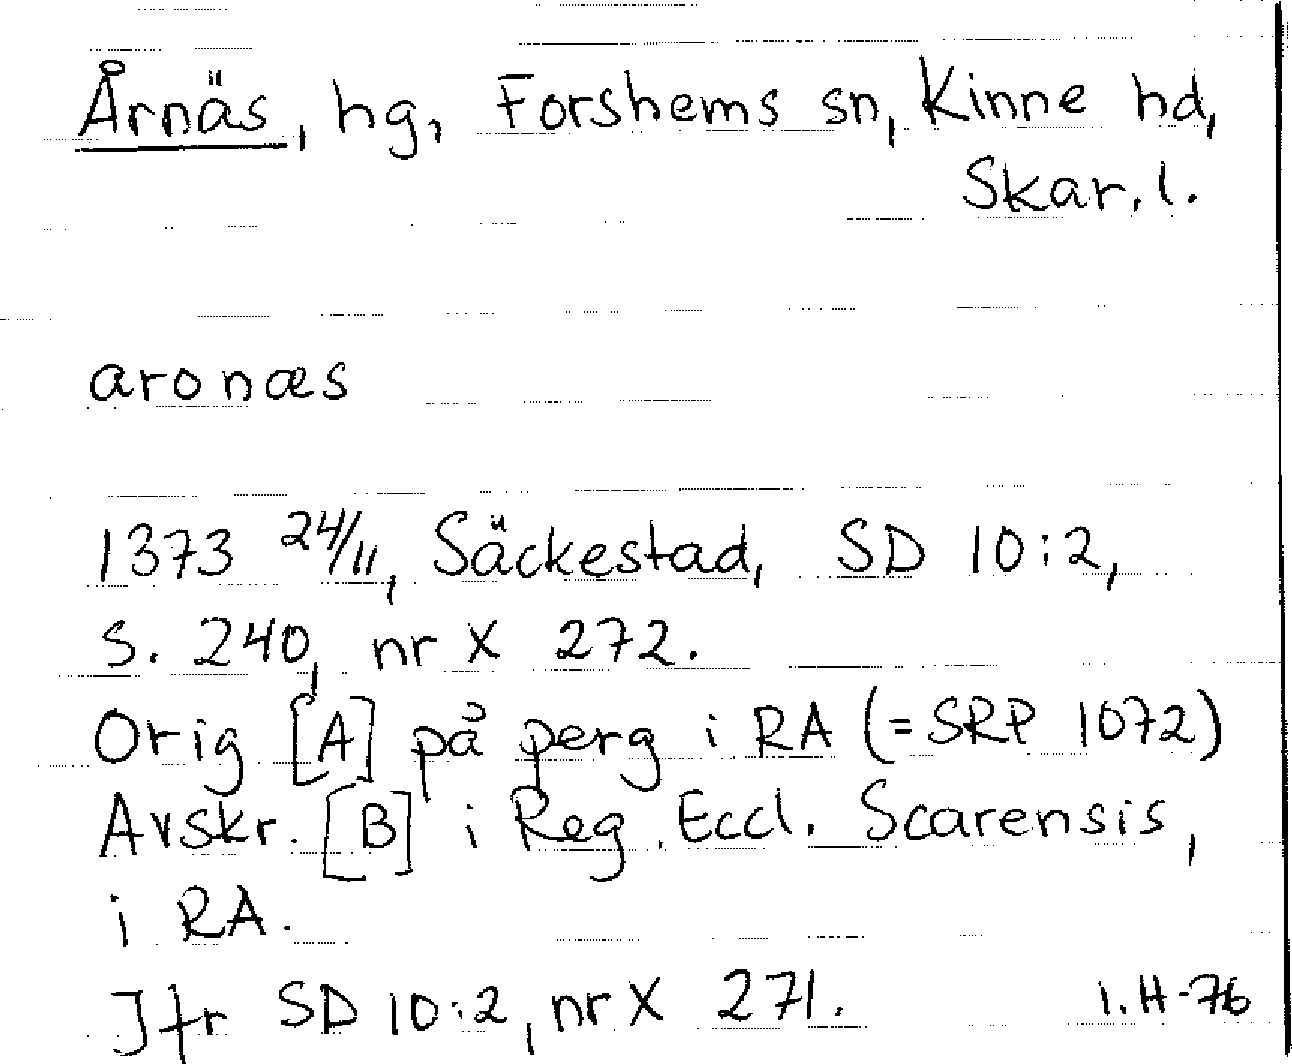 Årnäs, hg, Forshems sn, Kinne hd,
Skar. l.
aronæs
1373 24/11, Säckestad, SD 10:2,
S. 240, nr X 272.
Orig [A] på perg i RA (=SRP 1072)
Avskr. [B] i Reg. Eccl. Scarensis,
i RA.
Jfr SD 10:2, nr X 271.
I. H-76